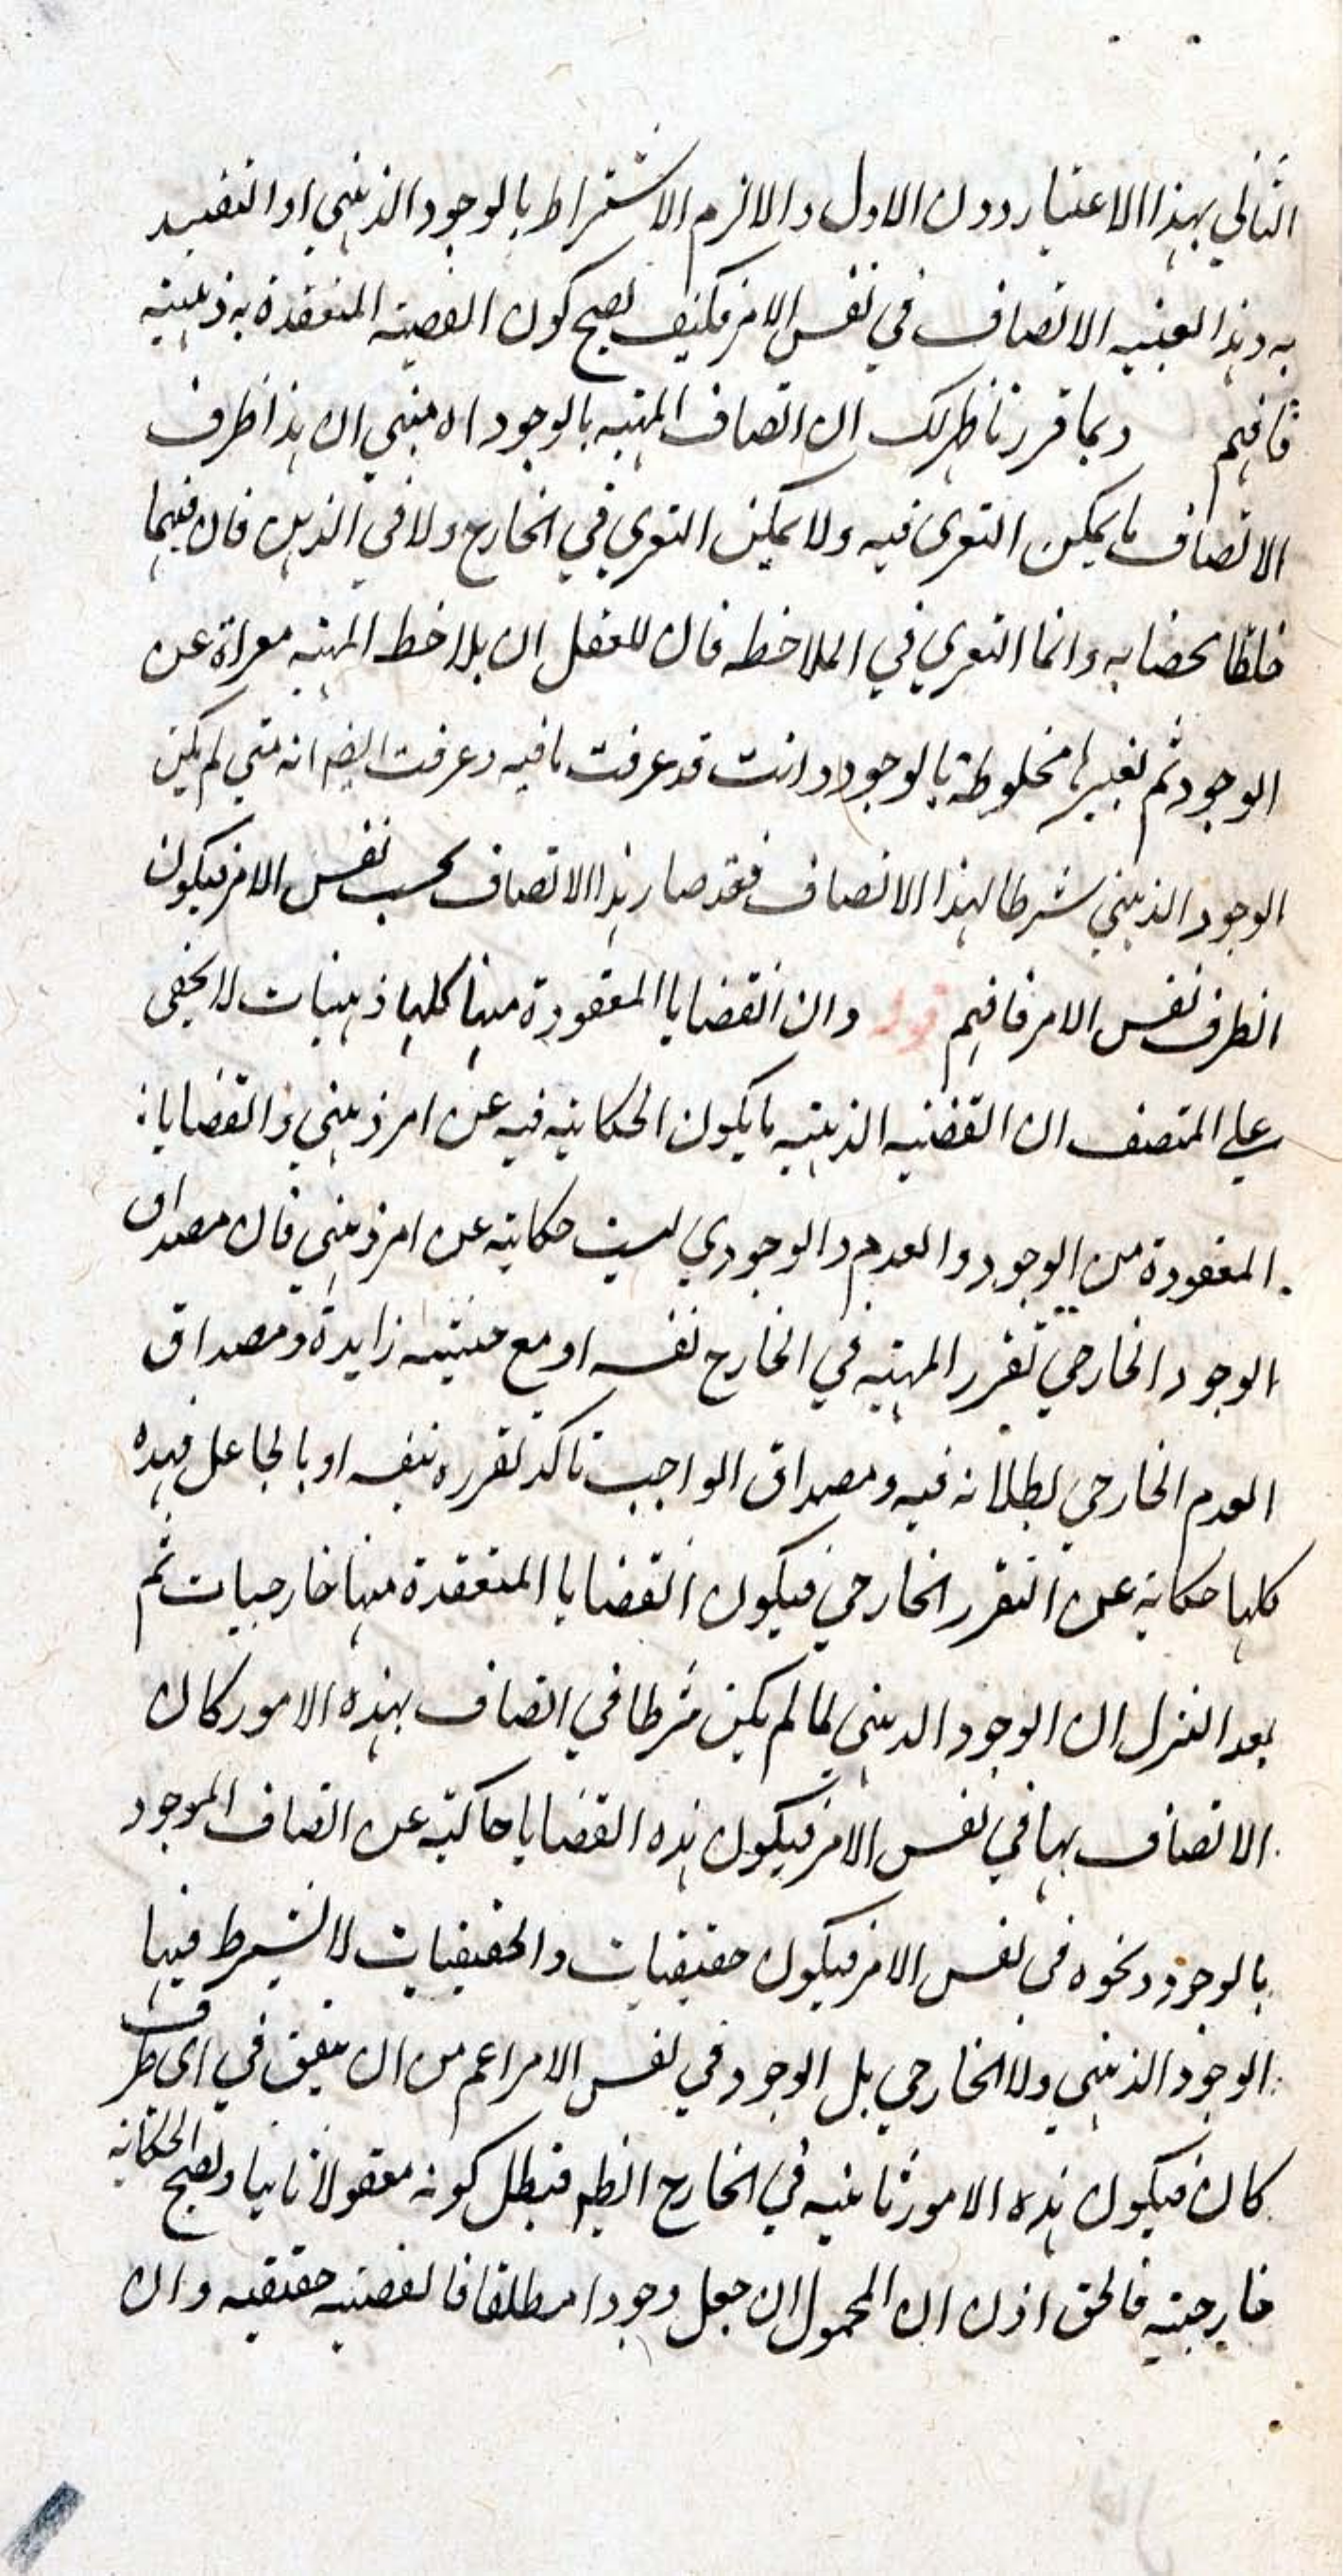 الثاني بهذا الاعتبار دون الاول والا لزم الاشتراط بالوجود الذهني او التقييد
به وهذا بعينه الاتصاف في نفس الامر فكيف يصح كون القضية المنعقدة به ذهنية
فافهم وبما قررنا ظهر لك ان اتصاف المهية بالوجود اه مبني ان هذا ظرف
الاتصاف ما يمكن التعرى فيه ولا يمكن التعري في الخارج ولا في الذهن فان فيهما
خلطا محضا به وانما التعري في الملاحظه فان للعقل ان يلاحظ المهية معراة عن
الوجود ثم يعتبرها مخلوطة بالوجود وانت قد عرفت ما فيه وعرفت ايضا انه متى لم يكن
الوجود الذهني شرطا لهذا الاتصاف فقد صار هذا الاتصاف بحسب نفس الامر فيكون
الظرف نفس الامر فافهم قوله وان القضايا المعقودة منها كلها ذهنيات لا يخفى
على المتصف ان القضيه الذهنية ما يكون الحكاية فيه عن امر ذهني والقضايا
المعقودة من الوجود والعدم والوجودي ليست حكاية عن امر ذهني فان مصداق
الوجود الخارجي تقرر المهية في الخارج نفسه او مع حيثية زايدة ومصداق
العدم الخارجي بطلانه فيه ومصداق الواجب تاكد تقرره بنفسه او بالجاعل فهذه
كلها حكاية عن التقرر الخارجي فيكون القضايا المنعقدة منها خارجيات ثم
بعد التنزل ان الوجود الذهني لما لم يكن شرطا في اتصاف بهذه الامور كان
الاتصاف بها في نفس الامر فيكون هذه القضايا حاكية عن اتصاف الموجود
بالوجود ونحوه في نفس الامر فيكون حقيقيات والحقيقيات لا يشترط فيها
الوجود الذهني ولا الخارجي بل الوجود في نفس الامر اعم من ان يتفق في اى ظرف
كان فيكون هذه الامور ثابتة في الخارج ايضا فيبطل كونه معقولا ثانيا وتصح الحكاية
خارجية فالحق اذن ان المحمول ان جعل وجودا مطلقا فالقضية حقيقيه وان